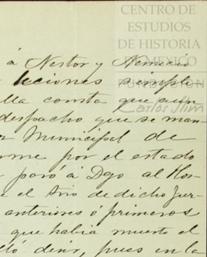 CENTRO DE
ESTUDIOS
DE HISTORIA
á Nestor y Nemecio
lecciones simple
lla consta que aun
despacho que se man
Municipal de
orme por el estado
pasó á Dgo al Hos
e el Srio de dicho Jur
anteriores ó primeros
que habia muerto el
tó decir, pues en la
Carlos Slim